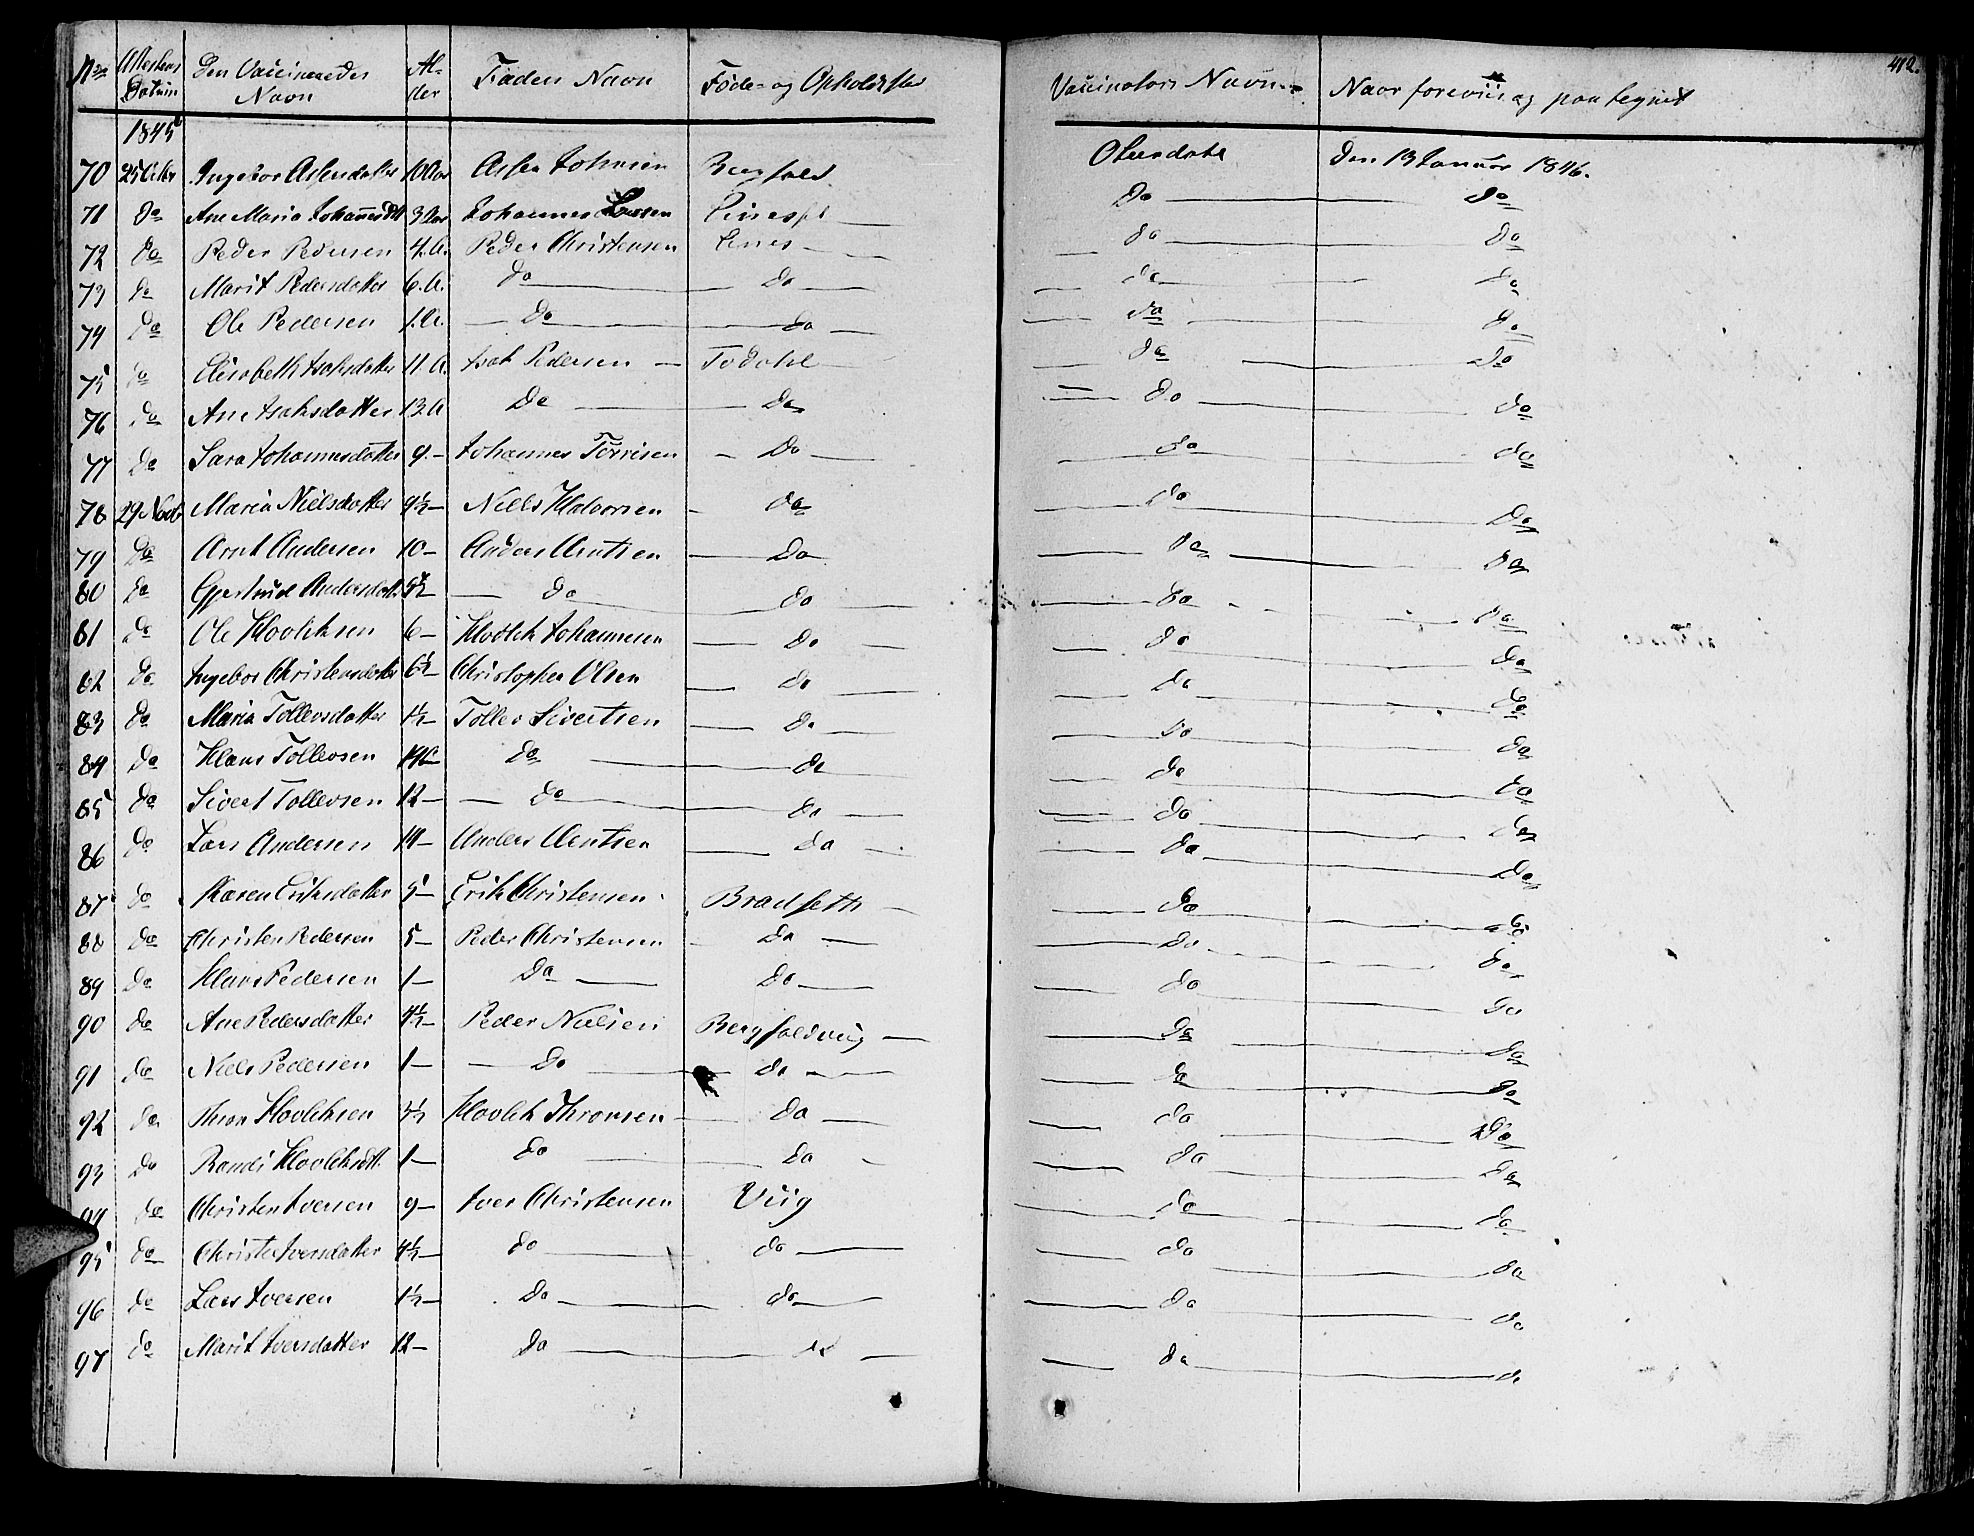 No Attestens Datum Den Vaccineredes Navn Al- der Faders Navn Føde- og Opholdssted Vaccinators Navn Naar foreviist og paategnet 412.
1845
70 25 Ingebor Asfendatter 10 Aar Asfen Johnsen Bergfald Olsendahl den 13 Januar 1846.
71 do Ane Maria Johannesdtt 3 Aar Johannes Larsen do do
72 do Peder Pedersen 4 A. Peder Christensen Lines do do
73 do Marit Pedersdatter 6 A. do do do do
74 do Ole Pedersen 1 A. do do do do
75 do Elisabeth Isaksdatter 11 A. Isak Pedersen Todahl do do
76 do Ane Isaksdatter 13 A do do do do
77 do Sara Johannesdatter 9 - Johannes Torrisen Do do do
78 29 Novb Maria Nielsdatter 9½ - Niels Halvorsen do do do
79 Do Arnt Andersen 10 - Anders Arntsen Do do do
80 do Gjertrud Andersdat. do do do do
81 do Ole Hovlcksen 6 - Hovlck Johannesen do do do
82 do Ingebor Christensdatter 6½ - Christopher Olsen do do do
83 do Maria Tollevsdatter 1½ - Tollev Sivertsen do do do
84 do Hans Tollevsen 14 - do do do do
85 do Sivert Tollevsen 12 - do do do do
86 do Lars Andersen 14 - Anders Arntsen do do do
87 do Karen Eriksdatter 5 - Erik Christensen Bradseth do do
88 do Christen Pedersen 5 - Peder Christensen Do do do
89 do Hans Pedersen 1 - Do do do do
90 do Ane Pedersdatter 4½ - Peder Nielsen Bergfaldviig do do
91 do Niels Pedersen 1 - Do do do do
92 do Thron Hovlcksen Hovlck Thronsen do do do
93 do Randi Hovlcksdtt. 1 - do do do do
94 do Christen Iversen 9 - Iver Christensen Viig do do
95 do Christi Iversdatter 4½ - do do do do
96 do Lars Iversen 1½ - Do do do do
97 do Marit Iversdatter 12 - Do do do do